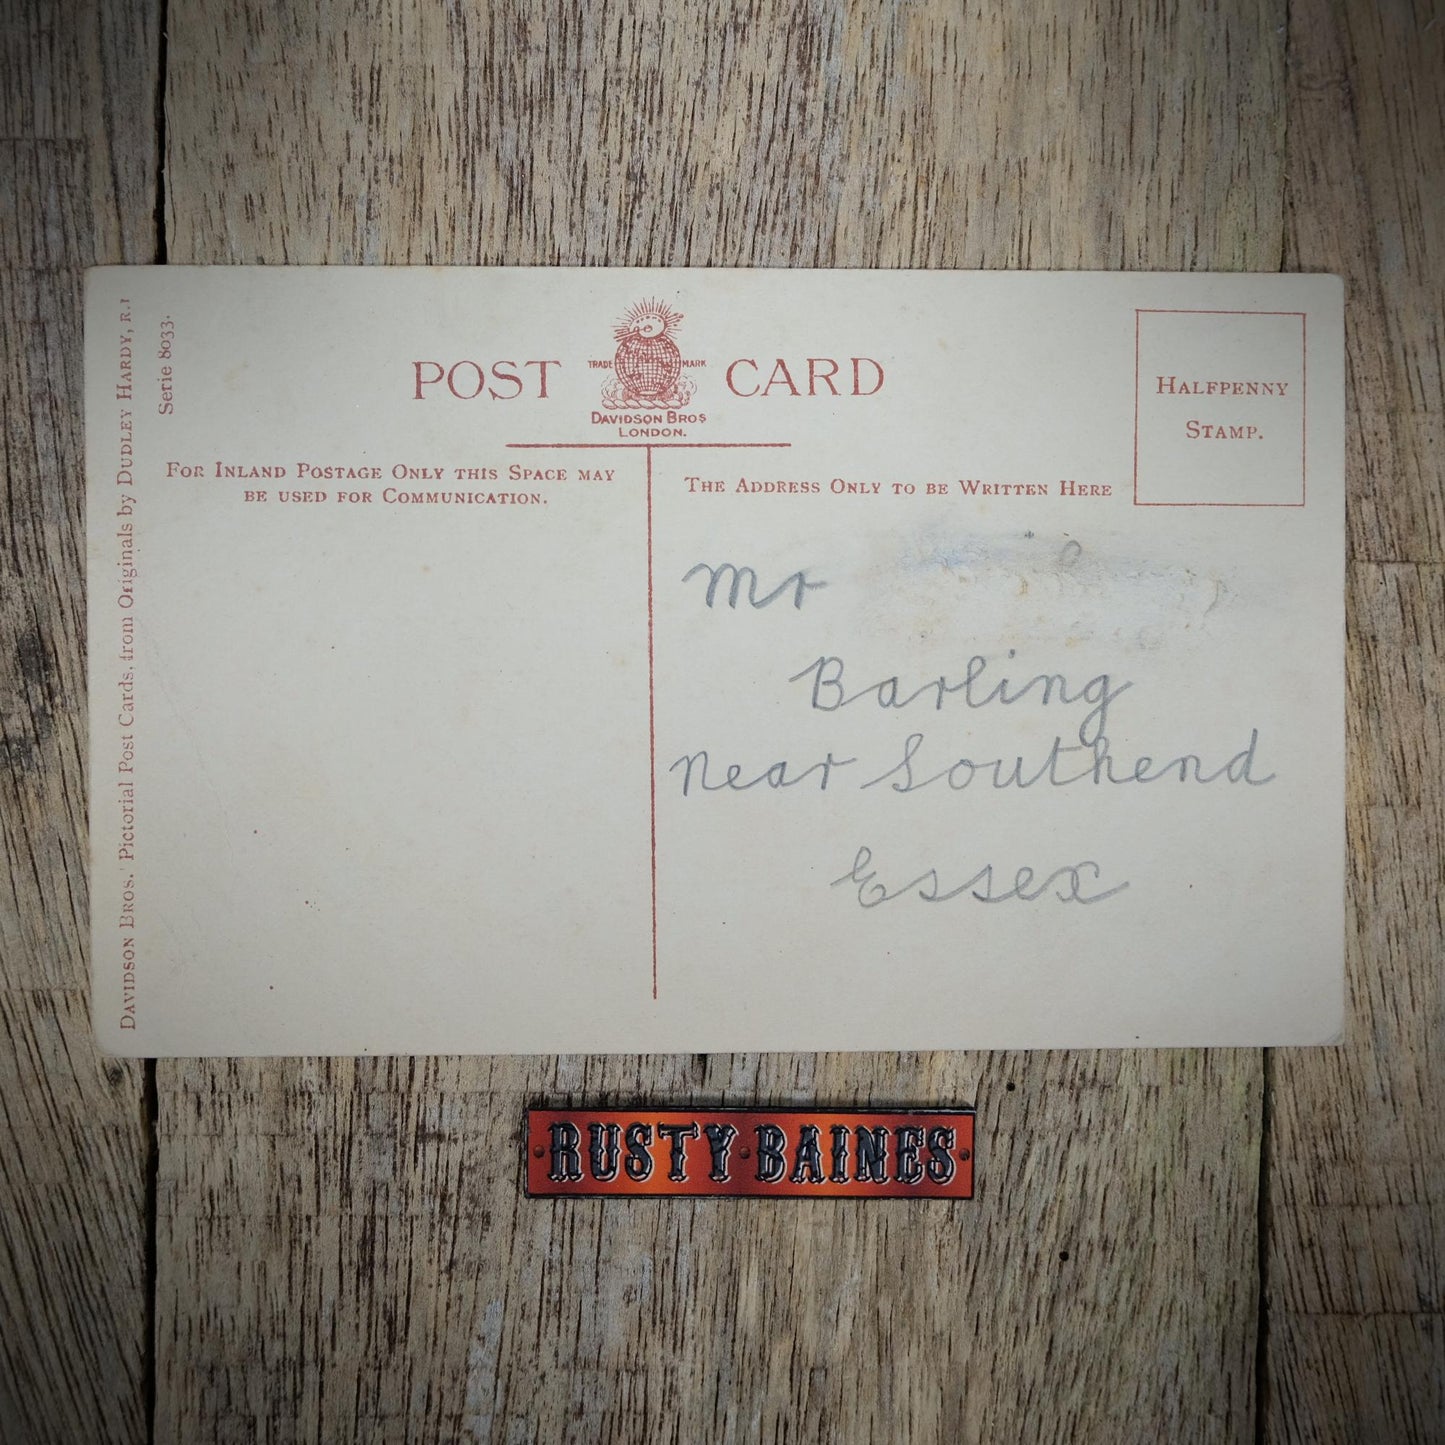 DAVIDSON BROS.' Pictorial Post Cards, from Originals by DUDLEY HARDY, R.I
Serie 8033.
POST CARD
TRADE MARK
DAVIDSON BROS
LONDON.
HALFPENNY
STAMP.
FOR INLAND POSTAGE ONLY THIS SPACE MAY
BE USED FOR COMMUNICATION.
THE ADDRESS ONLY TO BE WRITTEN HERE
Mr
Barling
near Southend
Essex
RUSTY BAINES